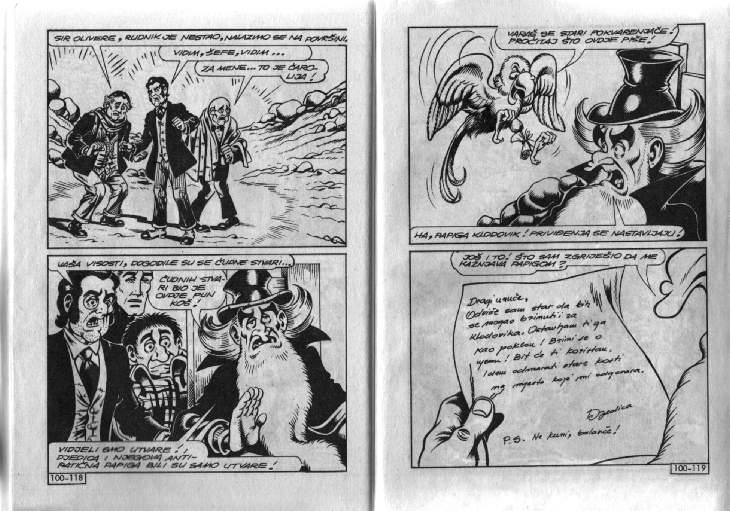 SIR OLIVERE, RUDNIK JE NESTAO, NALAZIMO SE NA POVRŠINI.
VIDIM, ŠEFE, VIDIM...
ZA MENE... TO JE ČARO-
LIJA!
VAŠA VISOSTI, DOGODILE SU SE ČUDNE STVARI...
ČUDNIH STVA-
RI BIO JE
OVDJE PUN
KOŠ!
VIDJELI SMO UTVARE!
DJEDICA I NJEGOVA ANTI-
PATIČNA PAPIGA BILI SU SAMO UTVARE!
100-118
VARAŠ SE STARI POKVARENJAČE!
PROČITAJ ŠTO OVDJE PIŠE!
HA, PAPIGA KLODOVIK! PRIVIĐENJA SE NASTAVLJAJU!
JOŠ I TO! ŠTO SAM ZGRIJEŠIO DA ME
KAŽNJAVA PAPIGOM?
Dragi unuče,
Odviše sam star da bih
se mogao brinuti za
Klodovika. Ostavljam ti ga
kao poklon! Brini se o
njemu! Bit će ti koristan.
Idem odmarati stare kosti
na mjesto koje mi odgovara.
Djedica
P.S. Ne kuni, balavče!
100-119